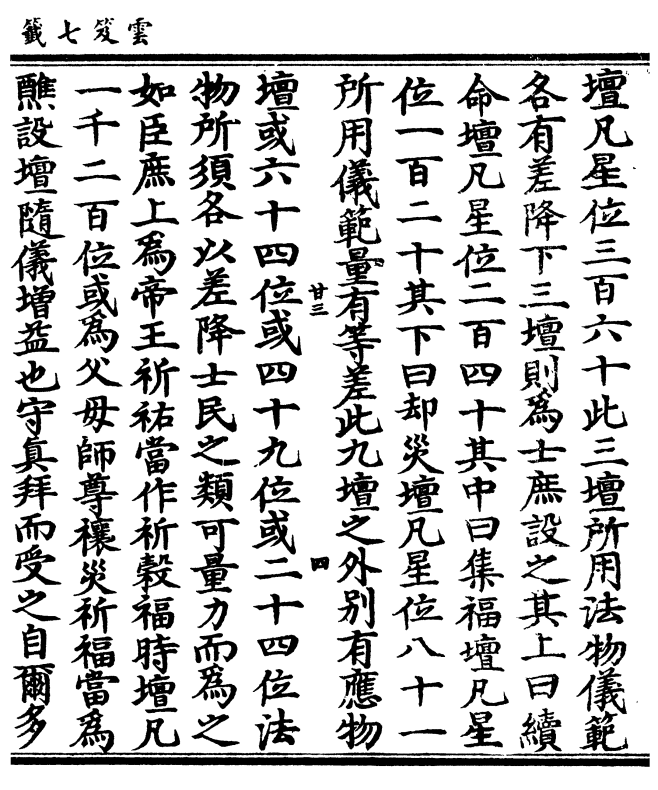 雲笈七籤
壇凡星位三百六十此三壇所用法物儀範
各有差降下三壇則為士庶設之其上曰續
命壇凡星位二百四十其中曰集福壇凡星
位一百二十其下曰却災壇凡星位八十一
所用儀範量有等差此九壇之外別有應物
廿三
四
壇或六十四位或四十九位或二十四位法
物所須各以差降士民之類可量力而為之
如臣庶上為帝王祈祐當作祈穀福時壇凡
一千二百位或為父母師尊禳災祈福當為
醮設壇隨儀增益也守真拜而受之自爾多